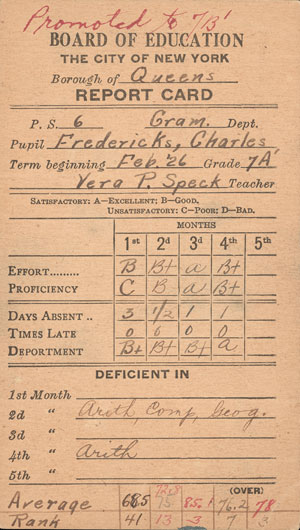 Promoted to 7B'
BOARD OF EDUCATION
THE CITY OF NEW YORK
Borough of Queens
REPORT CARD
P. S. 6 Gram. Dept.
Pupil Fredericks, Charles
Term beginning Feb. '26 Grade 7A'
Vera P. Speck Teacher
SATISFACTORY: A—EXCELLENT; B—GOOD.
UNSATISFACTORY: C—POOR; D—BAD.
MONTHS
1st 2d 3d 4th 5th
EFFORT......... B B+ a B+
PROFICIENCY C B a B+
DAYS ABSENT .. 3 1/2 1 1
TIMES LATE 0 0 0 0
DEPORTMENT B+ B+ B+ a
DEFICIENT IN
1st Month
2d " Arith, Comp, Geog.
3d "
4th " Arith
5th "
(OVER)
Average 68.5 85.1 76.2 78
Rank 41 13 3 3